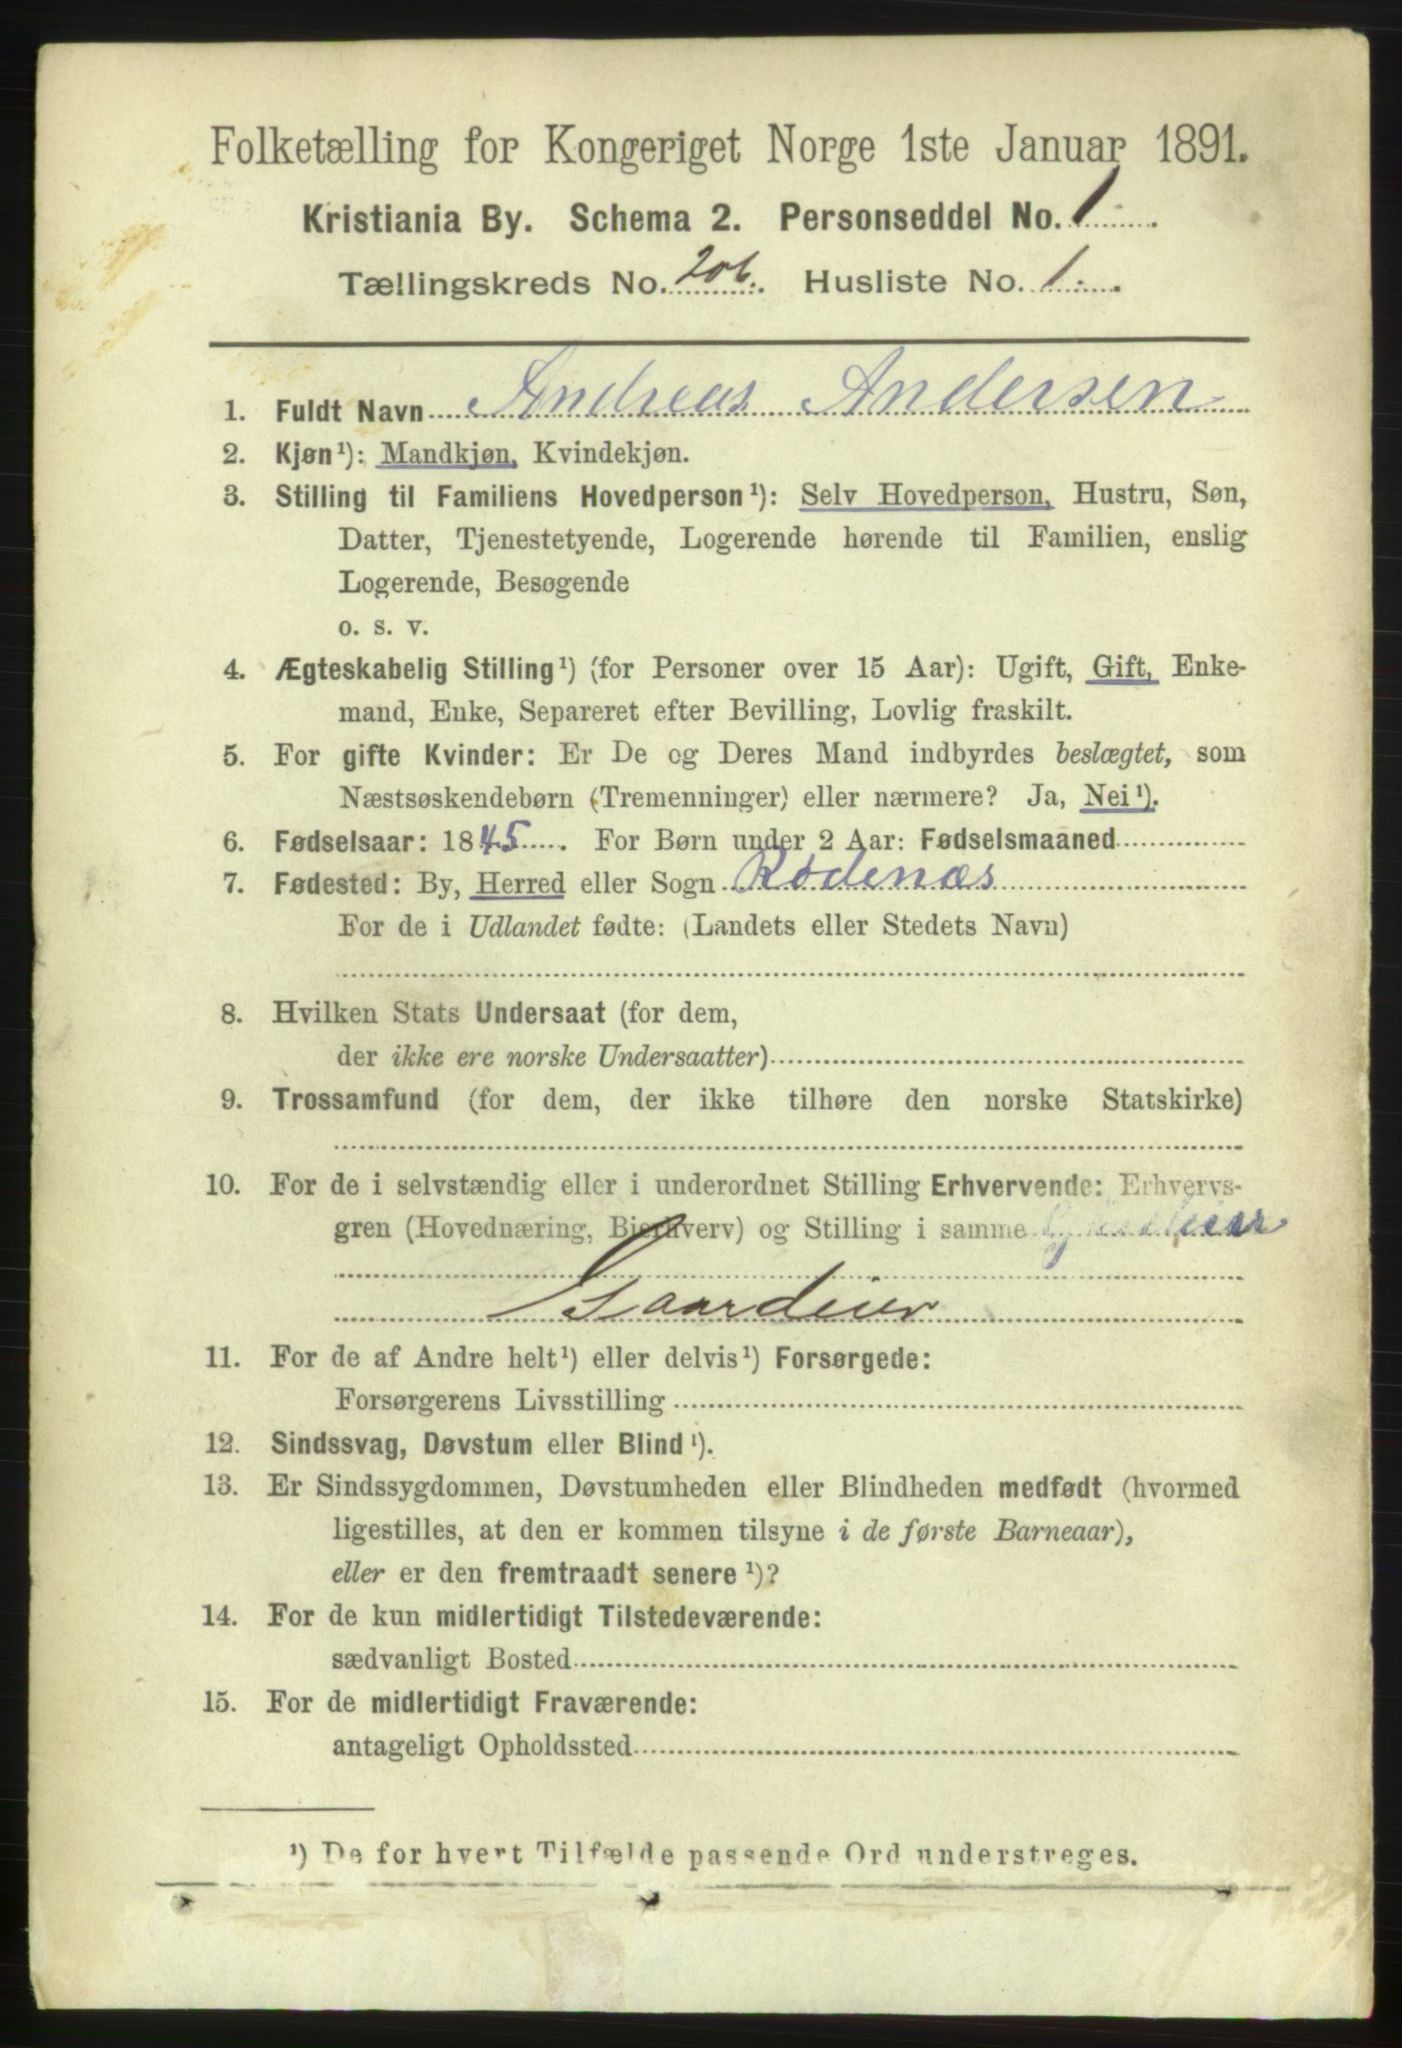 Folketælling for Kongeriget Norge 1ste Januar 1891.
Kristiania By. Schema 2. Personseddel No. 1
Tællingskreds No. 206. Husliste No. 1.
1. Fuldt Navn Andreas Andersen
2. Kjøn¹): Mandkjøn, Kvindekjøn.
3. Stilling til Familiens Hovedperson¹): Selv Hovedperson, Hustru, Søn,
Datter, Tjenestetyende, Logerende hørende til Familien, enslig
Logerende, Besøgende
o. s. v.
4. Ægteskabelig Stilling¹) (for Personer over 15 Aar): Ugift, Gift, Enke-
mand, Enke, Separeret efter Bevilling, Lovlig fraskilt.
5. For gifte Kvinder: Er De og Deres Mand indbyrdes beslægtet, som
Næstsøskendebørn (Tremenninger) eller nærmere? Ja, Nei¹).
6. Fødselsaar: 1845. For Børn under 2 Aar: Fødselsmaaned
7. Fødested: By, Herred eller Sogn Rødenæs
For de i Udlandet fødte: (Landets eller Stedets Navn)
8. Hvilken Stats Undersaat (for dem,
der ikke ere norske Undersaatter)
9. Trossamfund (for dem, der ikke tilhøre den norske Statskirke)
10. For de i selvstændig eller i underordnet Stilling Erhvervende: Erhvervs-
gren (Hovednæring, Bierhverv) og Stilling i samme
Gaardeier
11. For de af Andre helt¹) eller delvis¹) Forsørgede:
Forsørgerens Livsstilling
12. Sindssvag, Døvstum eller Blind¹).
13. Er Sindssygdommen, Døvstumheden eller Blindheden medfødt (hvormed
ligestilles, at den er kommen tilsyne i de første Barneaar),
eller er den fremtraadt senere¹)?
14. For de kun midlertidigt Tilstedeværende:
sædvanligt Bosted
15. For de midlertidigt Fraværende:
antageligt Opholdssted
¹) De for hvert Tilfælde passende Ord understreges.